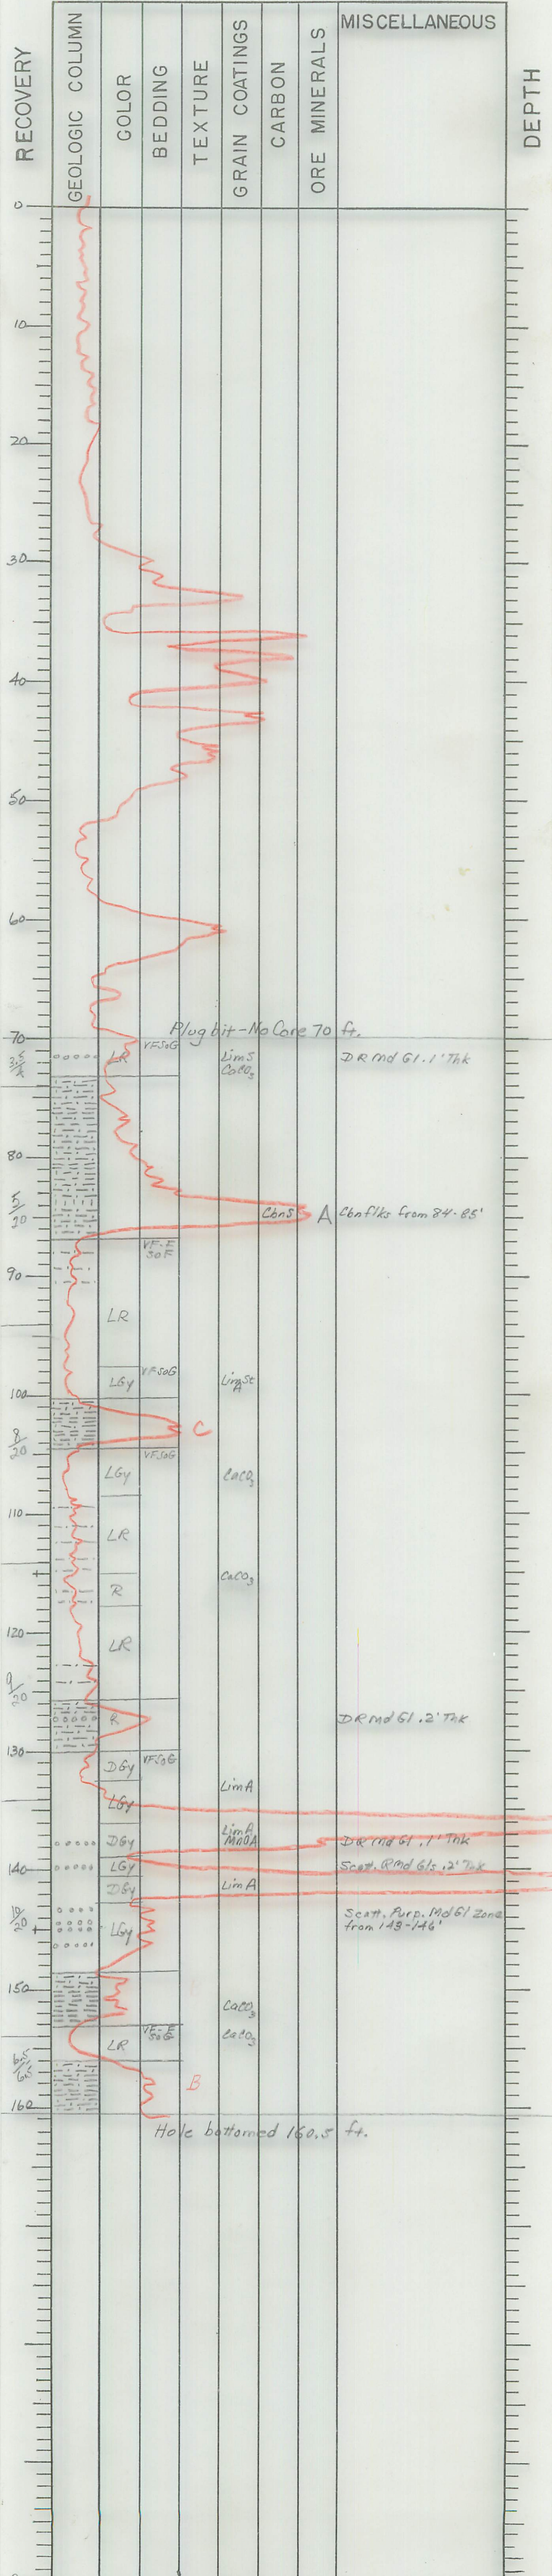 RECOVERY
GEOLOGIC COLUMN
COLOR
BEDDING
TEXTURE
GRAIN COATINGS
CARBON
ORE MINERALS
MISCELLANEOUS
DEPTH
0
10
20
30
40
50
60
Plug bit - No Core 70 ft.
70
VFSoG
LR
LimS
CaCO3
DR Md Gl .1' Thk
80
5/20
CbnS
A
Cbn flks from 84-85'
VF-F
SoF
90
LR
VFSoG
LGy
100
C
8/20
VFSoG
LGy
CaCO3
110
LR
CaCO3
R
120
LR
9/20
R
DR Md Gl .2' Thk
130
DGy
VFSoG
LimA
LGy
LimA
MnOA
DGy
DR Md Gl .1' Thk
140
LGy
Scatt. RMd Gls .2' Thk
DGy
LimA
10/20
LGy
Scatt. Purp. Md Gl Zone
from 143-146'
150
CaCO3
VF-F
SoG
CaCO3
LR
6.5/6.5
B
160
Hole bottomed 160.5 ft.